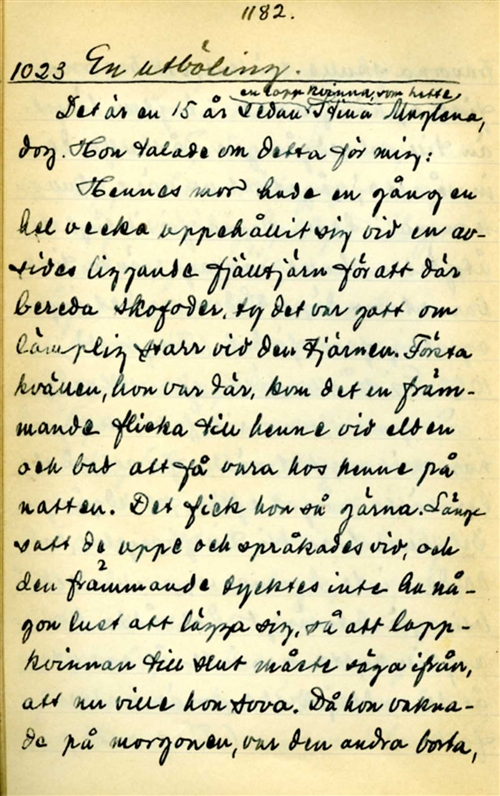 1182.
1023 En utböling.
en lappkvinna, som hette
Det är en 15 år sedan Stina Maglena,
dog. Hon talade om detta för mig:
Hennes mor hade en gång en
hel vecka uppehållit sig vid en av-
sides liggande fjälltjärn för att där
bereda skofoder, ty det var gott om
lämplig starr vid den tjärnen. Första
kvällen, hon var där, kom det en främ-
mande flicka till henne vid elden
och bad att få vara hos henne på
natten. Det fick hon så gärna. Länge
satt de uppe och språkades vid, och
den främmande tycktes inte ha nå-
gon lust att lägga sig, så att lapp-
kvinnan till slut måste säga ifrån,
att nu ville hon sova. Då hon vakna-
de på morgonen, var den andra borta,